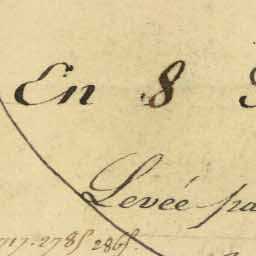 En 8
Levée pa
717. 2785 2865.